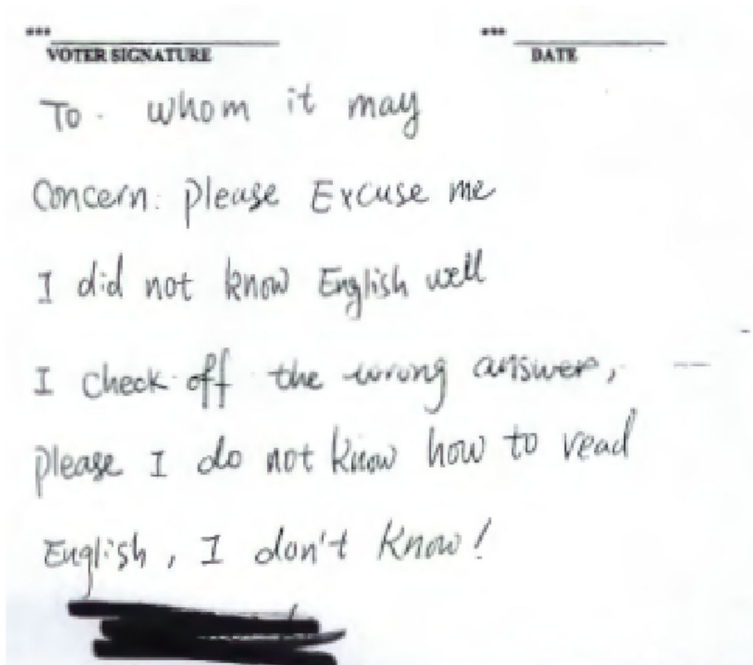 *** ______________ *** ______________
VOTER SIGNATURE DATE
To. whom it may
Concern: please Excuse me
I did not know English well
I check off the wrong answer,
please I do not know how to read
English, I don't know!